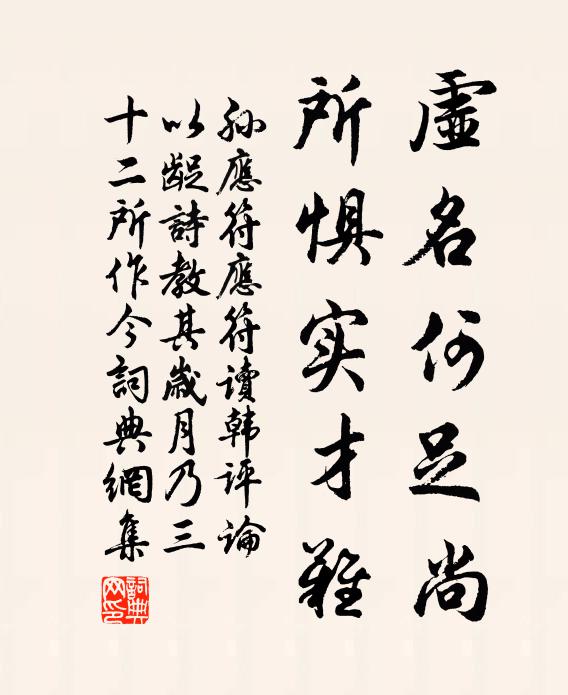 虛名何足尚
所惧实才難
孙應符應符读韩评論
以龊詩教其歲月乃三
十二所作今詞典網集
詞典網印